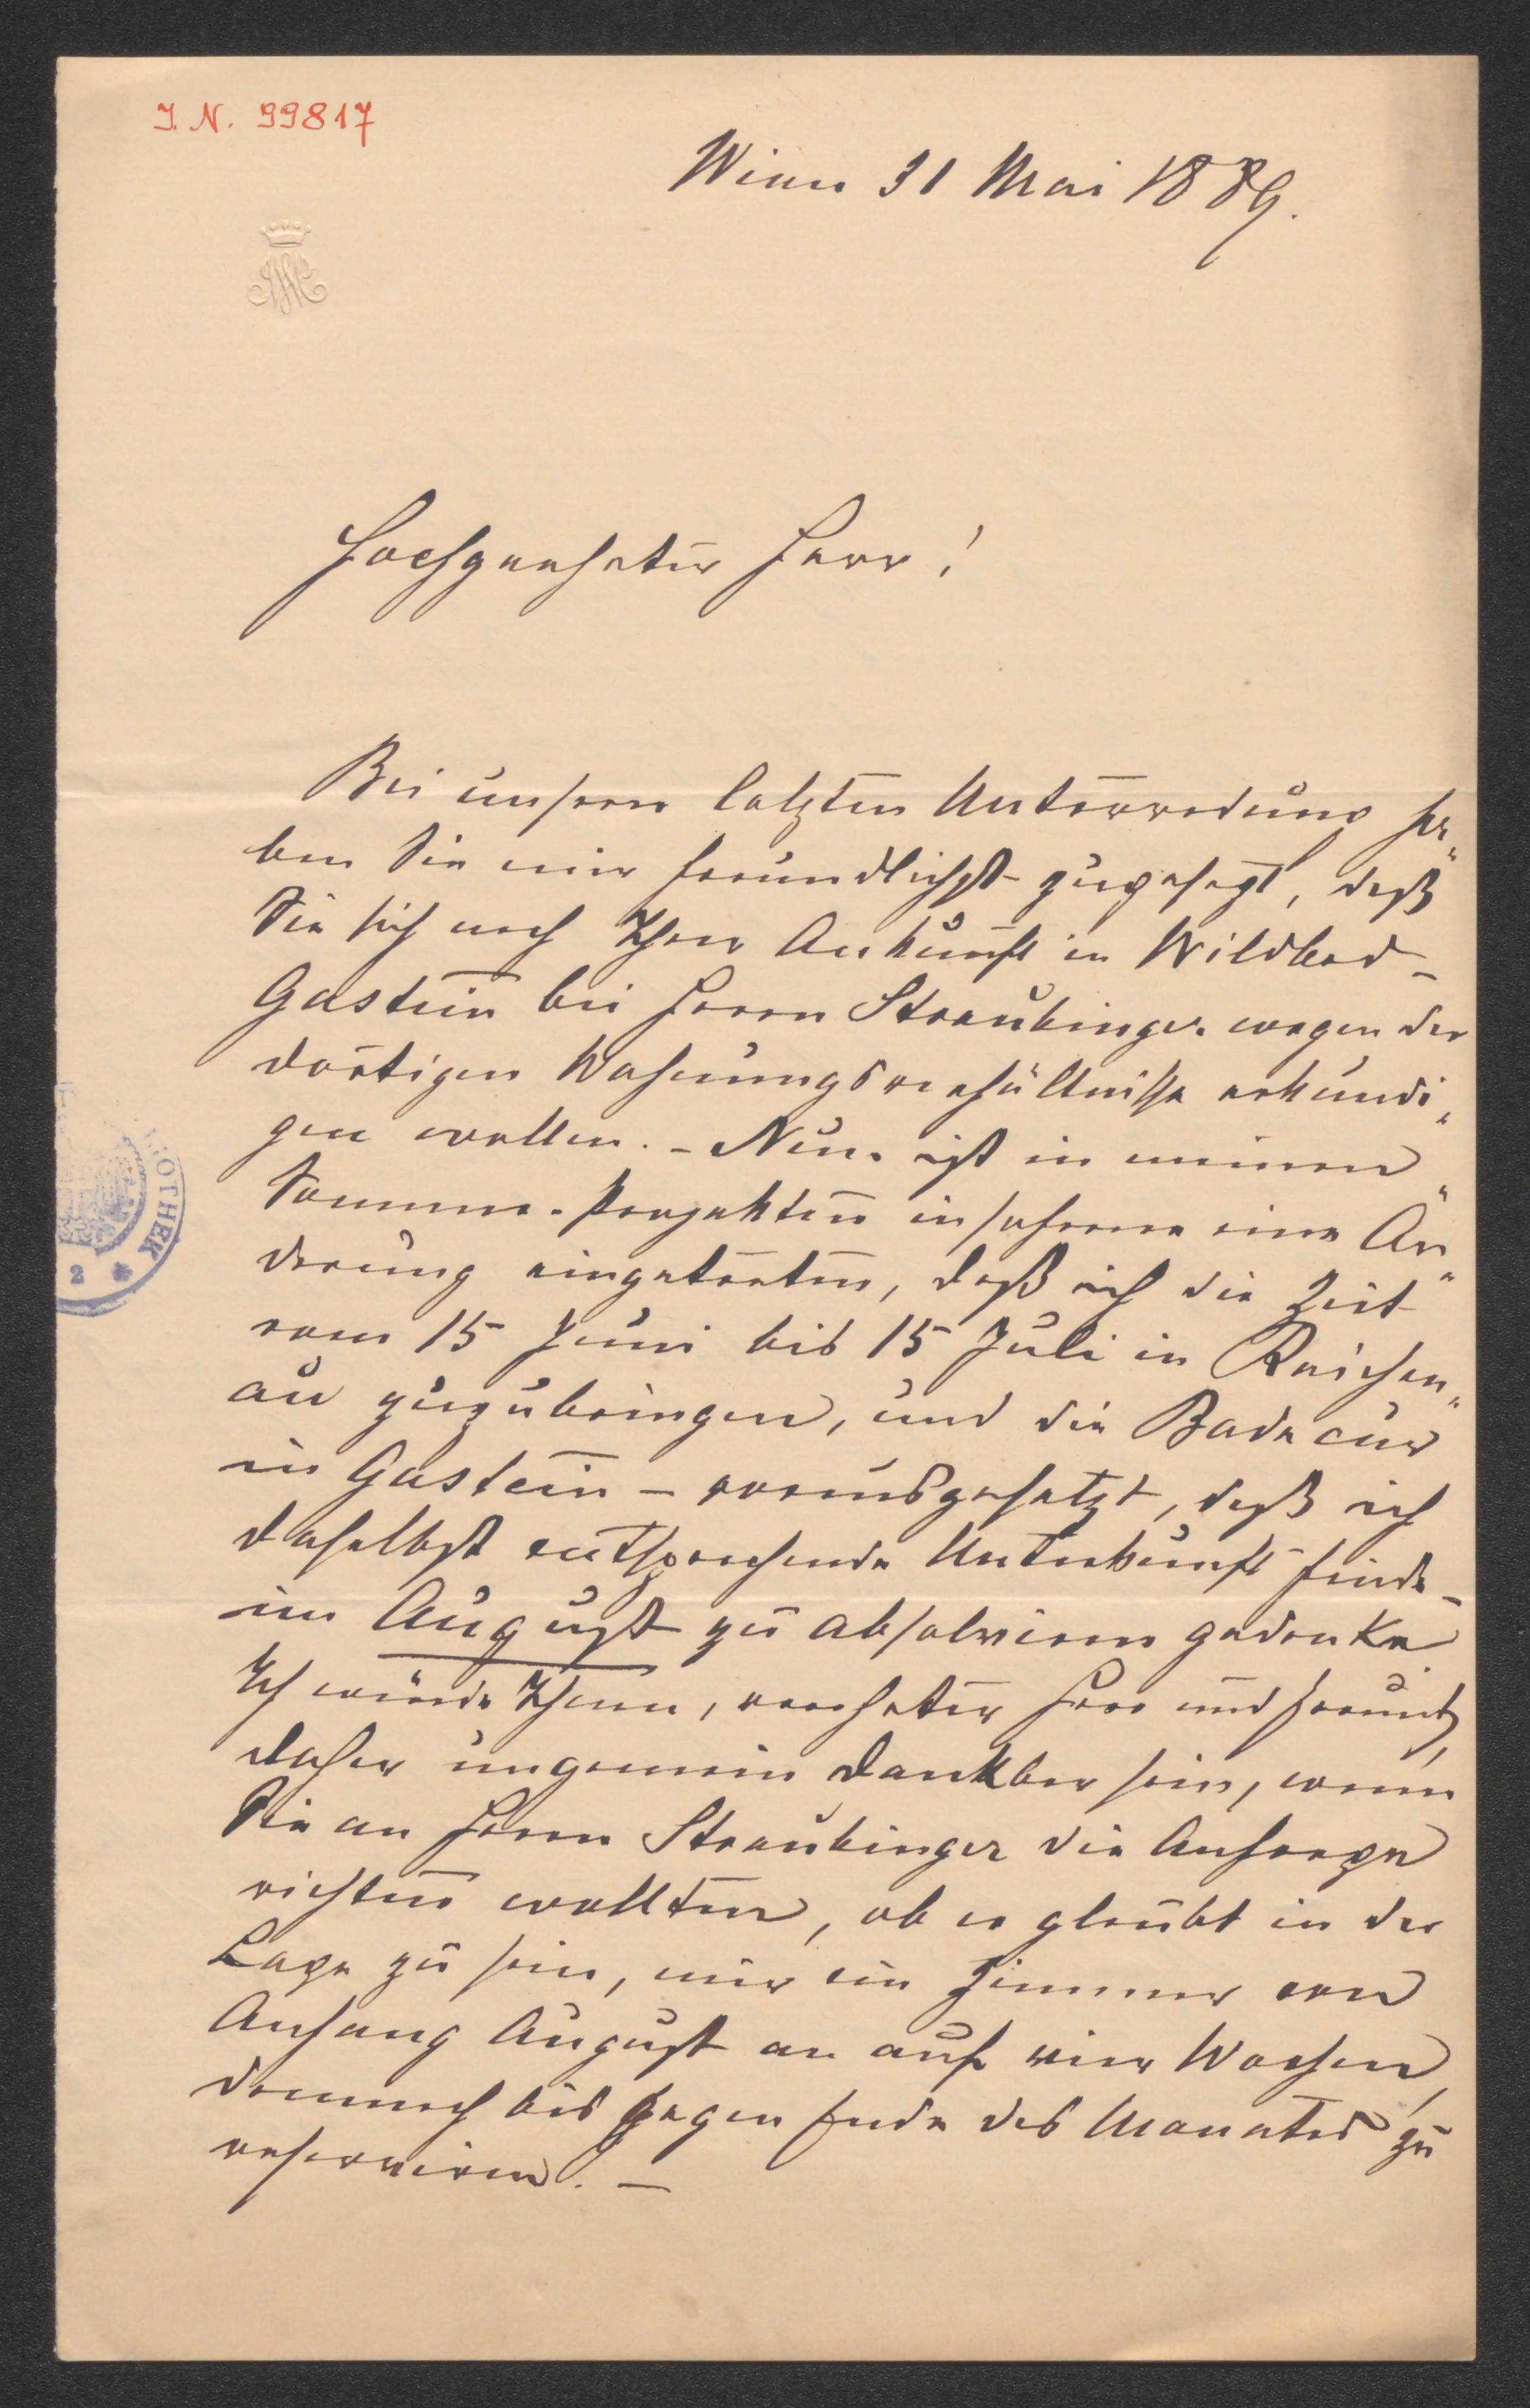 I. N. 99817
Wien 31 Mai 1889.
Hochgeehrter Herr!
Bei unserer letzten Unterredung ha„
ben Sie mir freundlichst zugesagt, daß
Sie sich nach Ihrer Ankunft in Wildbad-
Gastein bei Herrn Straubinger wegen der
dortigen Wohnungsverhältnisse erkundi„
gen wollen. – Nun ist in meinen
Sommer-Projekten insoferne eine Än„
derung eingetreten, daß ich die Zeit
vom 15 Juni bis 15 Juli in Reichen„
au zuzubringen, und die Badecur
in Gastein – vorausgesetzt, daß ich
daselbst entsprechende Unterkunft finde –
im August zu absolviren gedenke.
Ich würde Ihnen, verehrter Herr und Freund,
daher ungemein dankbar sein, wenn
Sie an Herrn Straubinger die Anfrage
richten wollten, ob er glaubt in der
Lage zu sein, mir ein Zimmer von
Anfang August an auf vier Wochen,
demnach bis gegen Ende des Monates zu
reserviren. –
OTHEK
2 *